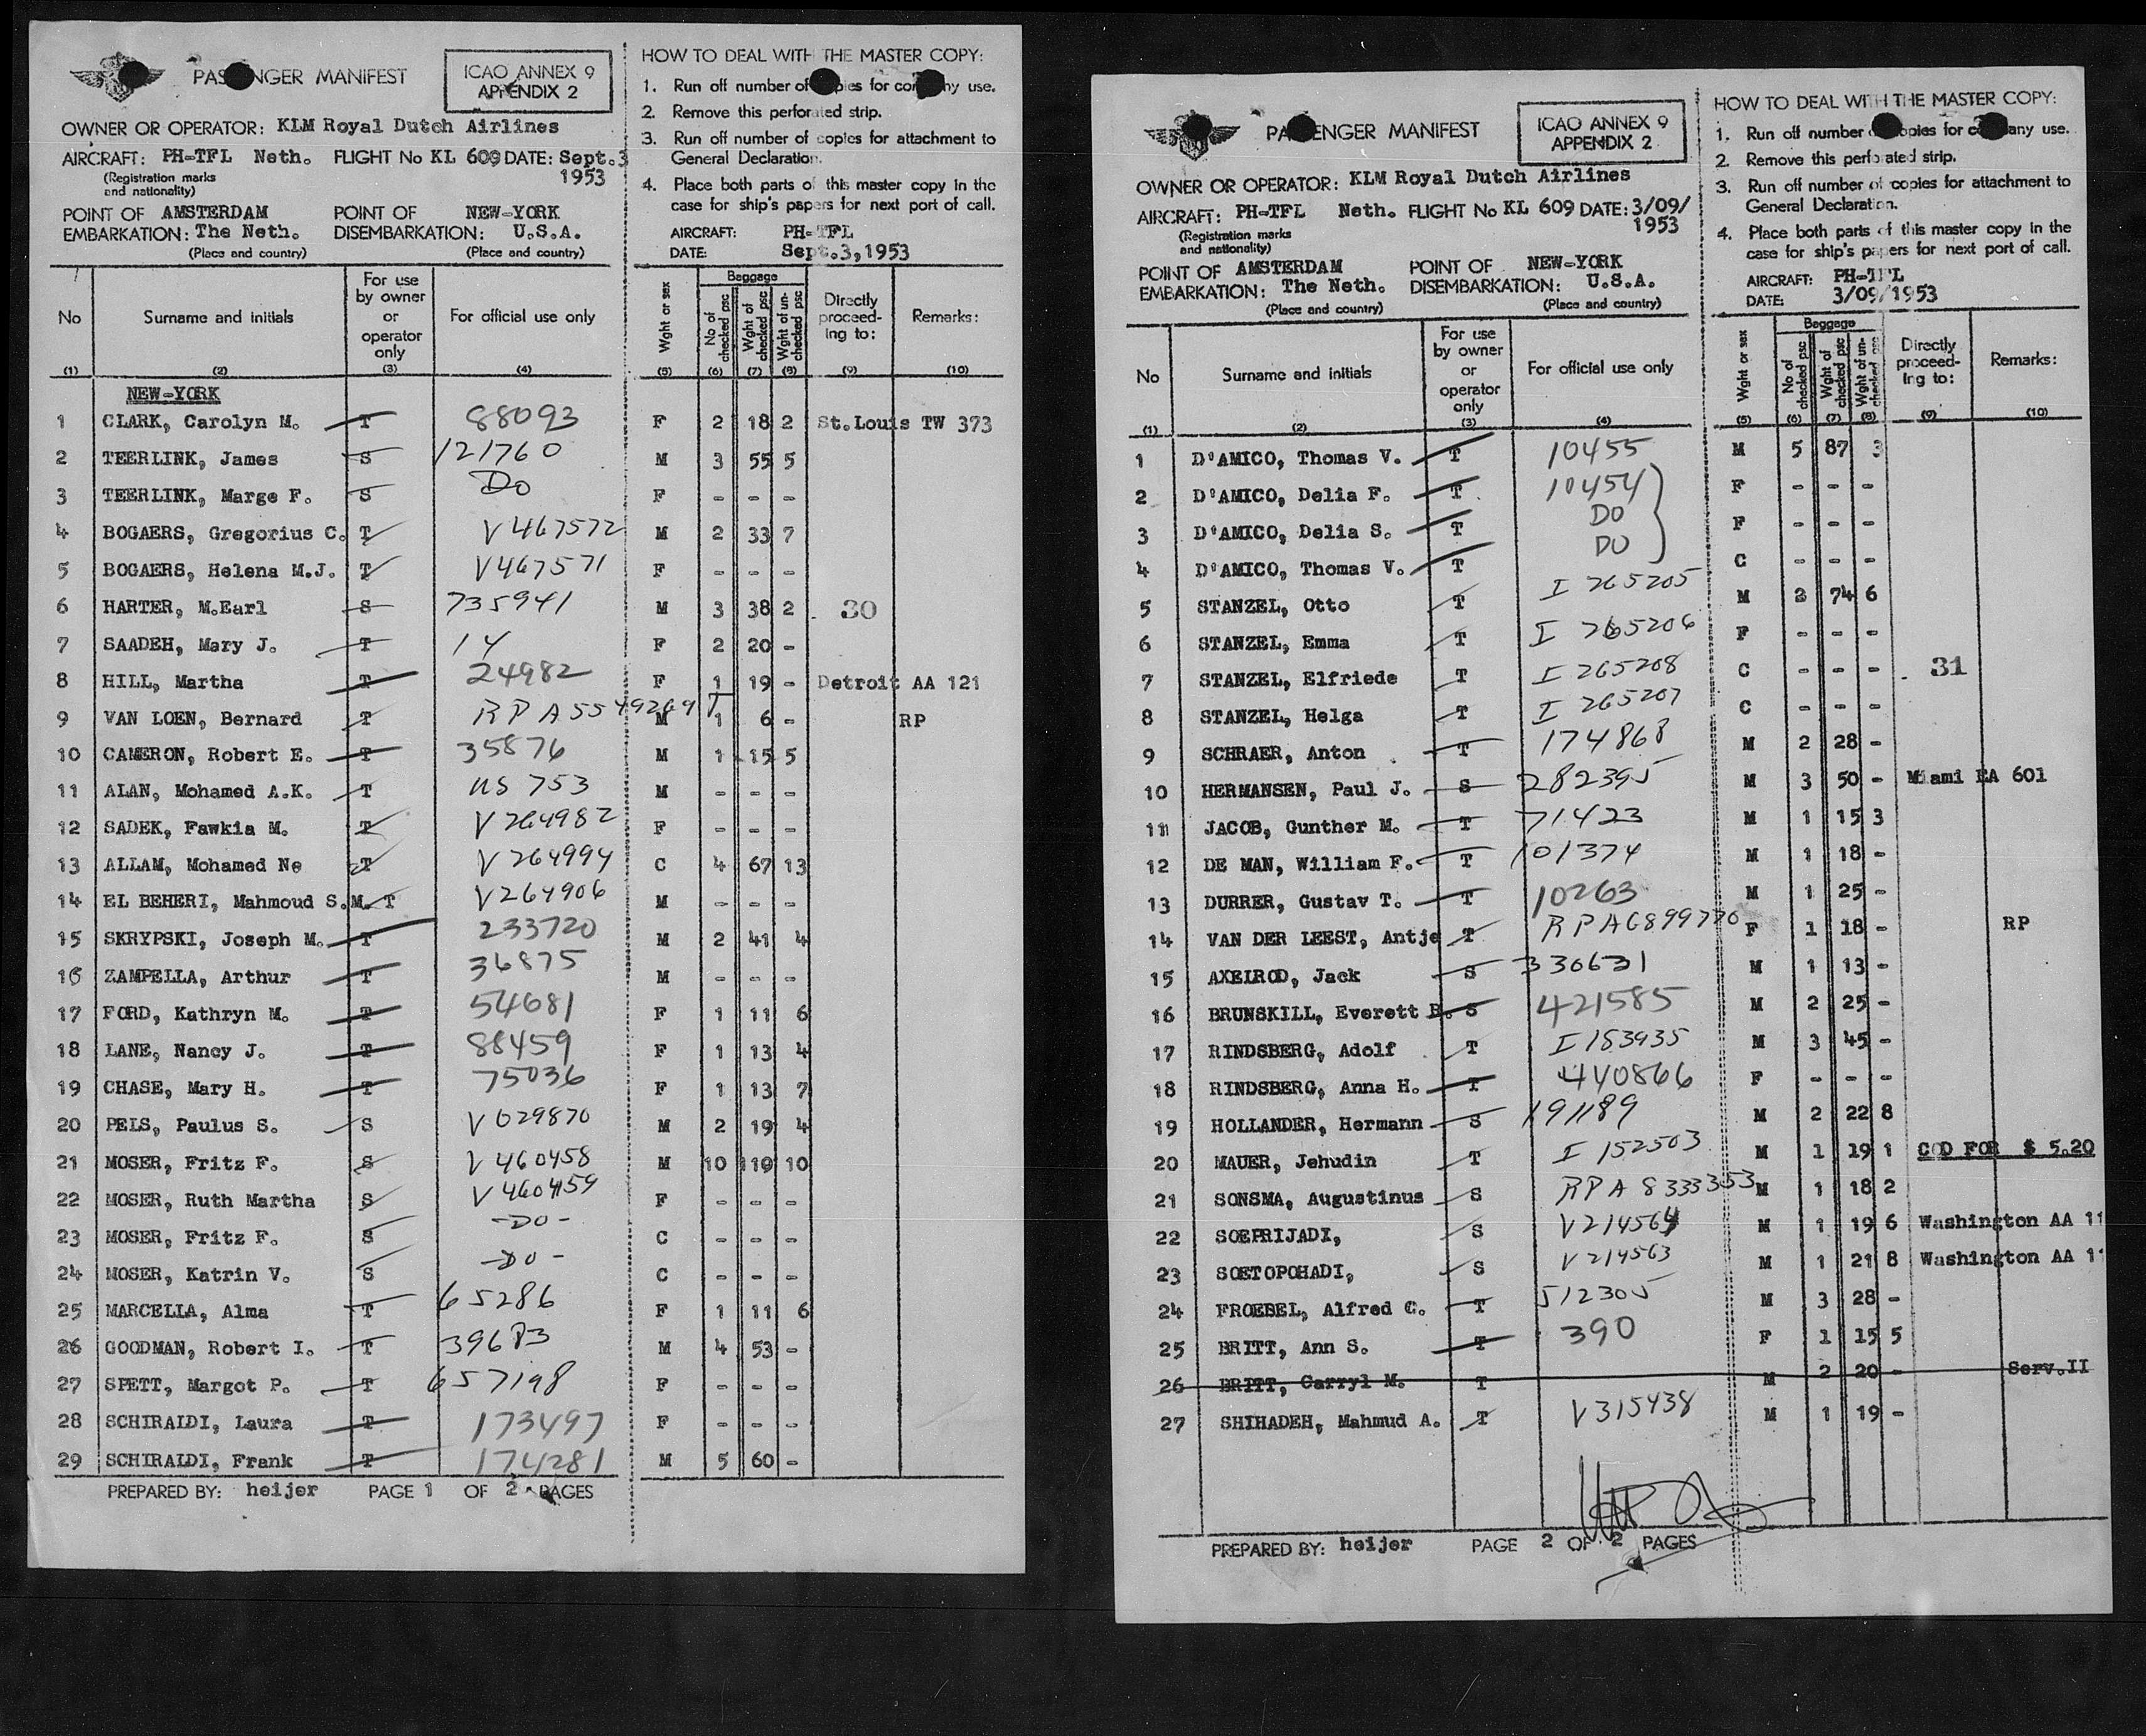 PASSENGER MANIFEST
ICAO ANNEX 9
APPENDIX 2
OWNER OR OPERATOR: KLM Royal Dutch Airlines
AIRCRAFT: PH-TFL Neth. FLIGHT No KL 609 DATE: Sept.3
1953
(Registration marks
and nationality)
POINT OF AMSTERDAM POINT OF NEW-YORK
EMBARKATION: The Neth. DISEMBARKATION: U.S.A.
(Place and country) (Place and country)
HOW TO DEAL WITH THE MASTER COPY:
1. Run off number of copies for company use.
2. Remove this perforated strip.
3. Run off number of copies for attachment to
General Declaration.
4. Place both parts of this master copy in the
case for ship's papers for next port of call.
AIRCRAFT: PH-TFL
DATE: Sept.3,1953
No Surname and initials For use by owner or operator only For official use only Wght or sex Baggage No of checked psc Wght of checked psc Wght of un-checked psc Directly proceed-ing to: Remarks:
(1) (2) (3) (4) (5) (6) (7) (8) (9) (10)
NEW-YORK
1 CLARK, Carolyn M. T 88093 F 2 18 2 St.Louis TW 373
2 TEERLINK, James S 121760 M 3 55 5
3 TEERLINK, Marge F. S Do F - - -
4 BOGAERS, Gregorius C. T V 467572 M 2 33 7
5 BOGAERS, Helena M.J. T V467571 F - - -
6 HARTER, M.Earl S 735941 M 3 38 2 30
7 SAADEH, Mary J. T 14 F 2 20 -
8 HILL, Martha T 24982 F 1 19 - Detroit AA 121
9 VAN LOEN, Bernard T RPA M 1 6 - RP
10 CAMERON, Robert E. T 35876 M 1 15 5
11 ALAN, Mohamed A.K. T US 753 M - - -
12 SADEK, Fawkia M. T V 264982 F - - -
13 ALLAM, Mohamed Ne T V 264994 C 4 67 13
14 EL BEHERI, Mahmoud S.M. T V264906 M - - -
15 SKRYPSKI, Joseph M. T 233720 M 2 41 4
16 ZAMPELLA, Arthur T 36875 M - - -
17 FORD, Kathryn M. T 54681 F 1 11 6
18 LANE, Nancy J. T 88459 F 1 13 4
19 CHASE, Mary H. T 75036 F 1 13 7
20 PELS, Paulus S. S V 029870 M 2 19 4
21 MOSER, Fritz F. S V 460458 M 10 119 10
22 MOSER, Ruth Martha S V 460459 F - - -
23 MOSER, Fritz F. S -DO- C - - -
24 MOSER, Katrin V. S -DO- C - - -
25 MARCELLA, Alma T 65286 F 1 11 6
26 GOODMAN, Robert I. T 39683 M 4 53 -
27 SPETT, Margot P. T 657198 F - - -
28 SCHIRALDI, Laura T 173497 F - - -
29 SCHIRALDI, Frank T 174281 M 5 60 -
PREPARED BY: heijer PAGE 1 OF 2 PAGES
PASSENGER MANIFEST
ICAO ANNEX 9
APPENDIX 2
OWNER OR OPERATOR: KLM Royal Dutch Airlines
AIRCRAFT: PH-TFL Neth. FLIGHT No KL 609 DATE: 3/09/
1953
(Registration marks
and nationality)
POINT OF AMSTERDAM POINT OF NEW-YORK
EMBARKATION: The Neth. DISEMBARKATION: U.S.A.
(Place and country) (Place and country)
HOW TO DEAL WITH THE MASTER COPY:
1. Run off number of copies for company use.
2. Remove this perforated strip.
3. Run off number of copies for attachment to
General Declaration.
4. Place both parts of this master copy in the
case for ship's papers for next port of call.
AIRCRAFT: PH-TFL
DATE: 3/09/1953
No Surname and initials For use by owner or operator only For official use only Wght or sex Baggage No of checked psc Wght of checked psc Wght of un-checked psc Directly proceed-ing to: Remarks:
(1) (2) (3) (4) (5) (6) (7) (8) (9) (10)
1 D'AMICO, Thomas V. T 10455 M 5 87 3
2 D'AMICO, Delia F. T 10454 F - - -
3 D'AMICO, Delia S. T DO F - - -
4 D'AMICO, Thomas V. T DO C - - -
5 STANZEL, Otto T I 265205 M 2 74 6
6 STANZEL, Emma T I 265206 F - - -
7 STANZEL, Elfriede T I 265208 C - - - 31
8 STANZEL, Helga T I 265207 C - - -
9 SCHRAER, Anton T 174868 M 2 28 -
10 HERMANSEN, Paul J. S 282395 M 3 50 - Miami EA 601
11 JACOB, Gunther M. T 71423 M 1 15 3
12 DE MAN, William F. T 101374 M 1 18 -
13 DURRER, Gustav T. T 10263 M 1 25 -
14 VAN DER LEEST, Antje T RPA6899770 F 1 18 - RP
15 AXELROD, Jack S 330631 M 1 13 -
16 BRUNSKILL, Everett B. S 421585 M 2 25 -
17 RINDSBERG, Adolf T I 183935 M 3 45 -
18 RINDSBERG, Anna H. T 440866 F - - -
19 HOLLANDER, Hermann S 191189 M 2 22 8
20 MAUER, Jehudin T I 152503 M 1 19 1 COD FOR $ 5.20
21 SONSMA, Augustinus S RPA 8333353 M 1 18 2
22 SOEPRIJADI, S V214564 M 1 19 6 Washington AA 11
23 SOETOPOHADI, S V 214563 M 1 21 8 Washington AA 11
24 FROEBEL, Alfred C. T 512305 M 3 28 -
25 BRITT, Ann S. T 390 F 1 15 5
26 BRITT, Carryl M. T M 2 20 - Serv.II
27 SHIHADEH, Mahmud A. T V315438 M 1 19 -
PREPARED BY: heijer PAGE 2 OF 2 PAGES